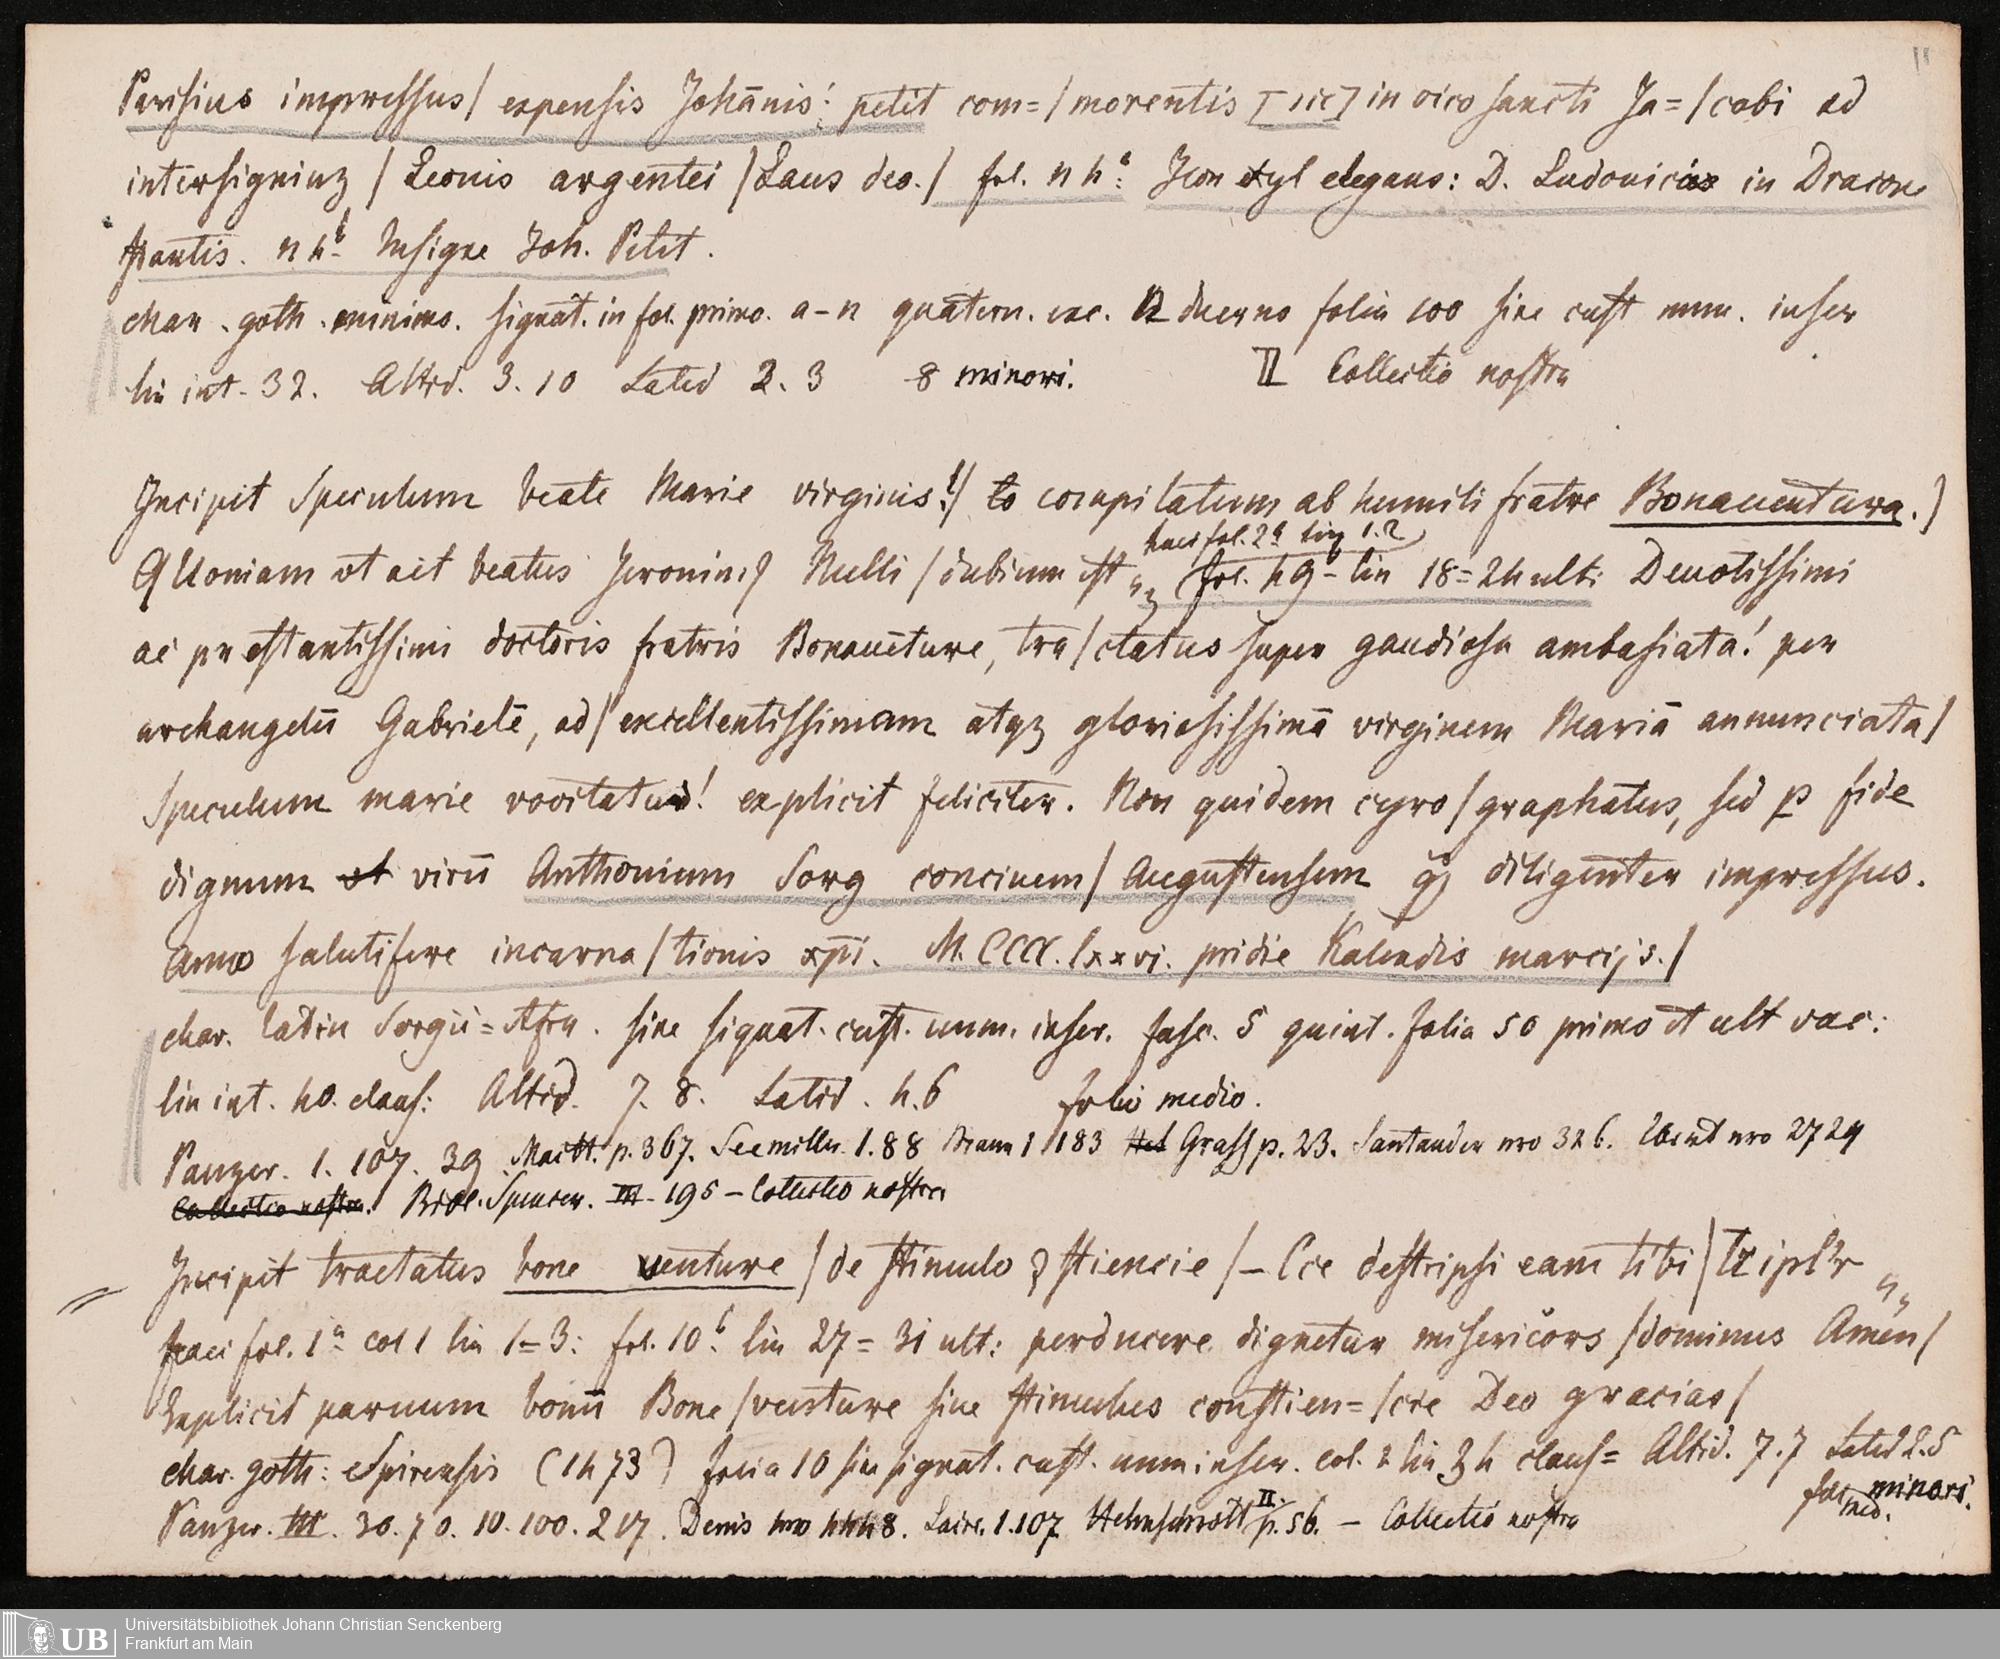 11
Parisius impressus / expensis Johānis! petit com= / morentis [sic] in vico sancti Ja= / cobi ad
intersigniuʒ / Leonis argentei / Laus deo. / fol. n 4ª: Icon xyl elegans: D. Ludovicus in Dracone
stantis. n 4b Insigne Joh. Petit.
char. goth. minimo. signat. in fol. primo. a-n quatern. exc. n duerno folia 100 sine cust num. inser
lin int. 32. Altid. 3. 10 Latid 2. 3 8 minori. II Collectio nostra
Incipit Speculum beate Marie virginis! / compilatum ab humili fratre Bonauentura. /
QUoniam vt ait beatus Jeronimꝰ Nulli / dubium est haec fol. 2ª lin 1.2 fol. 49b lin 18=24 ult: Deuotissimi
ac prestantissimi doctoris fratris Bonauēture, tra / ctatus super gaudiosa ambasiata! per
archangelū Gabrielē, ad / excellentissimam atqʒ gloriosissimā virginem Mariā annunciata /
Speculum marie vocitatus! explicit feliciter. Non quidem cyro / graphatus, sed p fide
dignum virū Anthonium Sorg conciuem / Augustensem qʒ diligenter impressus.
anno salutifere incarna / tionis xp̄i. M. CCCC. lxxvi. pridie Kalendis marcijs. /
char. latin Sorgii=Afra. sine signat. cust. num. inser. fasc. 5 quint. folia 50 primo et ult vac:
lin int. 40. claus: Altid. 7. 8. Latid. 4. 6 folio medio.
Panzer. 1. 107. 39 Maitt. p. 367. Seemiller. 1. 88 Braun 1 183 Grass p. 23. Santander nro 326. Ebert nro 2724
Collectio nostra. Bibl. Spencer. III. 195 – Collectio nostra
Incipit tractatus bone venture / de stimulo ꝯstiencie / – Cce descripsi eam tibi / tripl'r
haec fol. 1ª col 1 lin 1=3: fol. 10b. lin 27=31 ult: perducere dignetur misericors / dominus Amen /
Explicit paruum bonū Bone / venture siue stimulus constien= / cie Deo gracias /
char. goth: Spirensis (1473) folia 10 sine signat. cust. num inser. col. 2 lin 34 claus= Altid. 7. 7 Latid 2. 5
fol. med. minori.
Panzer. III. 30. 70. 10. 100. 217. Denis nro 4448. Laire. 1. 107 Helmschrott II. p. 56. – Collectio nostra
Universitätsbibliothek Johann Christian Senckenberg
UB Frankfurt am Main